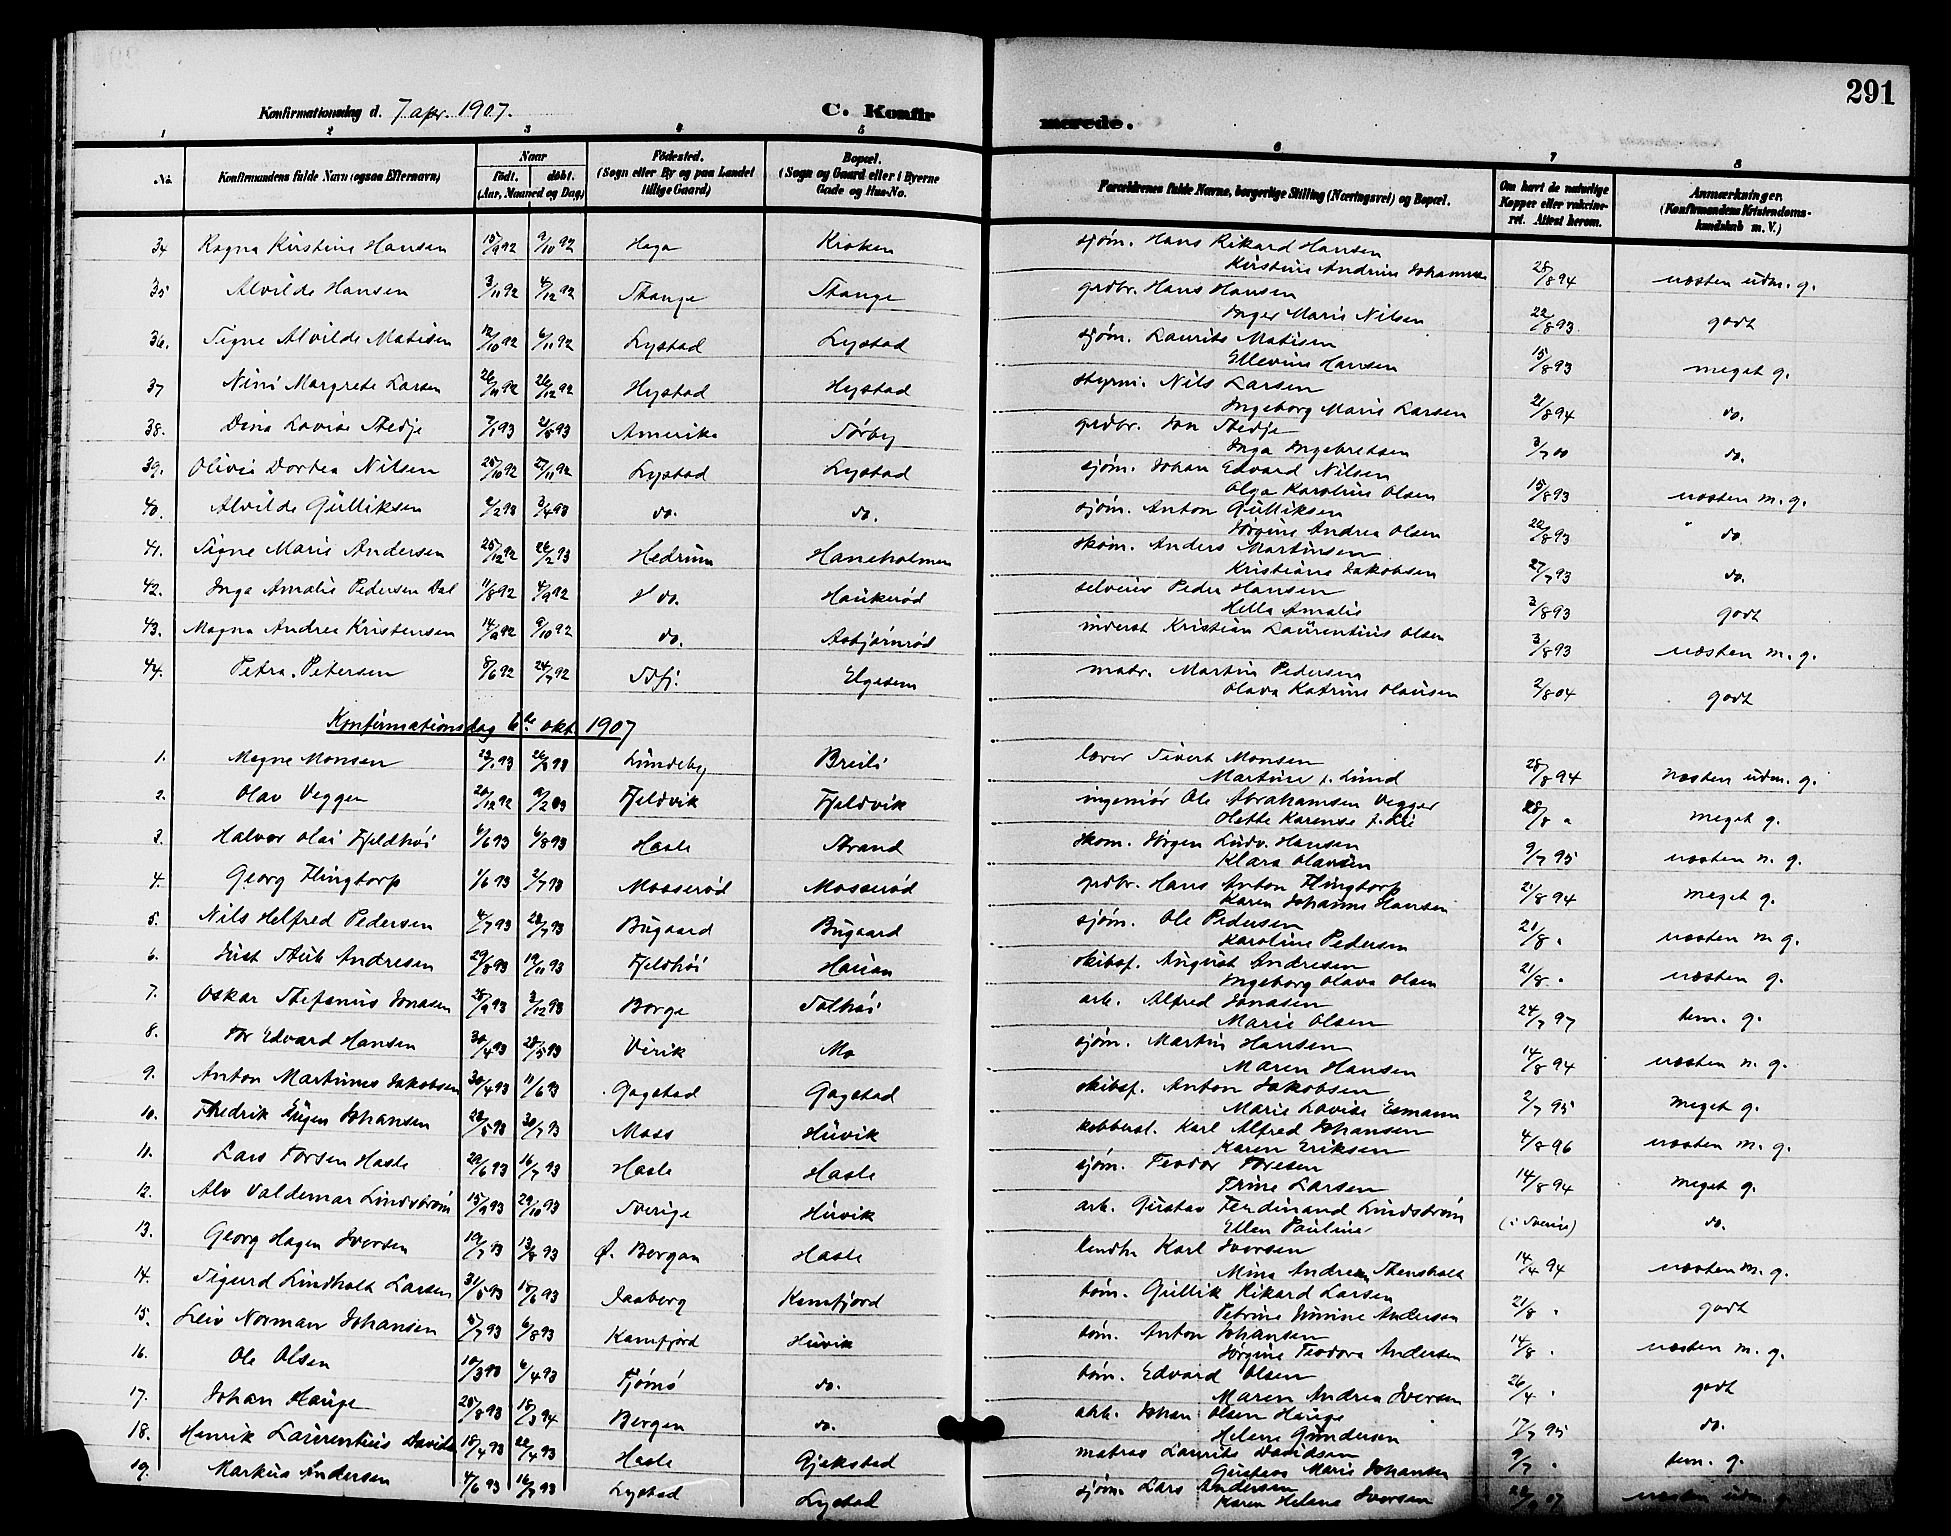 291
Konfirmationsdag d. 7 apr. 1907.
C. Konfirmerede.
1 2 3 4 5 6 7 8
No.
Konfirmandens fulde Navn (ogsaa Efternavn)
Naar født. døbt. (Aar, Maaned og Dag)
Fødested. (Sogn eller By og paa Landet tillige Gaard)
Bopæl. (Sogn og Gaard eller i Byerne Gade og Hus-No.
Forældrenes fulde Navne, borgerlige Stilling (Næringsvei) og Bopæl.
Om havt de naturlige Kopper eller vakcineret. Attest herom.
Anmærkninger. (Konfirmandens Kristendomskundskab m. V.)
34 Ragna Kirstine Hansen 15/9 92 9/10 92 Haga Kroken sjøm. Hans Rikard Hansen
Kirstine Andrine Johannesen 28/8 94 næsten udm. g.
35 Alvilde Hansen 3/11 92 4/12 92 Stange Stange grdbr. Hans Hansen
Inger Marie Nilsen 22/8 93. godt
36. Signe Alvilde Matisen 12/10 92 6/11 92 Lystad Lystad sjøm. Laurits Matisen
Ellevine Hansen 15/8 93 meget g.
37 Nini Margrete Larsen 26/11 92 26/12 92 Hystad Hystad styrm. Nils Larsen
Ingeborg Marie Larsen 21/8 94 do.
38. Dina Lovise Stedje 7/1 93 21/5 93 Amerika Sørby grdbr. Jon Stedje
Inga Ingebretsen 3/7 00 do.
39. Olivia Dortea Nilsen 25/10 92 27/11 92 Lystad Lystad sjøm. Johan Edvard Nilsen
Olga Karoline Olsen 15/8 93 næsten m. g.
40. Alvilde Gulliksen 2/2 93 3/4 93 do. do. sjøm. Anton Gulliksen
Jørgine Andrea Olsen 22/8 93 do.
41. Signe Marie Andersen 25/12 92 26/2 93 Hedrum Haneholmen skom. Anders Martinsen
Kristiane Jakobsen 27/7 93 do.
42. Inga Amalie Pedersen Dal 11/8 92 4/9 92 do. Haukerød selveier Peder Hansen
Hella Amalie 3/8 93 godt
43. Magna Andrea Kristensen 14/9 92 9/10 92 do. Asbjørnrød inderst Kristian Laurentius Olsen
3/8 93 næsten m. g.
44. Petra Petersen 8/6 92 24/7 92 Sdfj. Elgesem matr. Martin Pedersen
Olava Katrine Olausen 2/8 04 godt
Konfirmationsdag 6te okt. 1907
1. Magne Monsen Lundeby Breili lærer Sivert Monsen
Martine f. Lund 28/8 94 næsten udm. g.
2. Olav Veggen 20/12 92 Fjeldvik Fjeldvik ingeniør Ole Abrahamsen Vegger
Olette Karense f. Lie 28/8 " meget g.
3. Halvor Olai Fjeldhøi 6/6 93 6/8 93 Hasle Strand skom. Jørgen Ludv. Hansen
Klara Olausen 9/7 95 næsten m. g.
4. Georg Flingtorp 1/6 93 2/7 93 Mosserød Mosserød grdbr. Hans Anton Flingtorp
Karen Johanne Hansen 21/8 94 meget g.
5. Nils Helfred Pedersen 4/7 93 28/7 93 Bugaard Bugaard sjøm. Ole Pedersen
Karoline Pedersen 21/8 " næsten m g.
6. Just Stub Andresen 29/8 93 19/11 93 Fjeldhøi Hauan skibsf. August Andresen
Ingeborg Olava Olsen 21/8 " næsten g.
7. Oskar Stefanus Jonasen 25/9 93 3/12 93 Borge Solhøi arb. Alfred Jonasen
Marie Olsen 24/7 97 tem. g.
8. Tor Edvard Hansen 30/4 93 28/5 93 Virik Mo sjøm. Martin Hansen
Maren Hansen 14/8 94 næsten m. g.
9. Anton Martinus Jakobsen 30/4 93 11/6 93 Gogstad Gogstad skibsf. Anton Jakobsen
Marie Lovise Esmann 2/7 95 meget g.
10. Fredrik Eugen Johansen 22/5 93 30/7 93 Moss Huvik kobbersl. Karl Alfred Johansen
Karen Eriksen 4/8 96 næsten m. g.
11. Lars Torsen Hasle 29/6 93 16/7 93 Hasle Hasle sjøm. Teodor Toresen
Trine Larsen 14/8 94 meget g.
12. Alv Valdemar Lindstrøm 15/9 93 29/10 93 Sverige Huvik arb. Gustav Ferdinand Lindstrøm
Ellen Pauline (i Sverige) do.
13. Georg Hagen Iversen 19/7 93 13/8 93 Ø. Bergan Hasle lendhr Karl Iversen
Mina Andrea Stensholt 14/4 94 næsten m. g.
14. Sigurd Lindholt Larsen 31/5 93 18/6 93 Jaaberg Kamfjord tøm. Gullik Rikard Larsen
Petrine Jonine Andersen 21/8 " godt
15. Leiv Norman Johansen 5/7 93 6/8 93 Kamfjord Huvik tøm. Anton Johansen
Jørgine Teodora Andersen 14/8 " næsten m. g.
16. Ole Olsen 10/3 93 6/4 93 Tjømø do. tøm. Edvard Olsen
Maren Andrea Iversen 26/4 " godt
17. Johan Hauge 25/8 93 Bergen do. arb. Johan Olsen Hauge
Helene Gundersen 17/7 95 do.
18. Henrik Laurentius Davids 18/4 93 22/4 93 Hasle Gjekstad matros Laurits Davidsen
Gustava Marie Johansen 9/7 " tem. g.
19. Markus Andersen 4/6 93 16/7 93 Lystad Lystad sjøm. Lars Andersen
Karen Helene Iversen næsten udm. g.